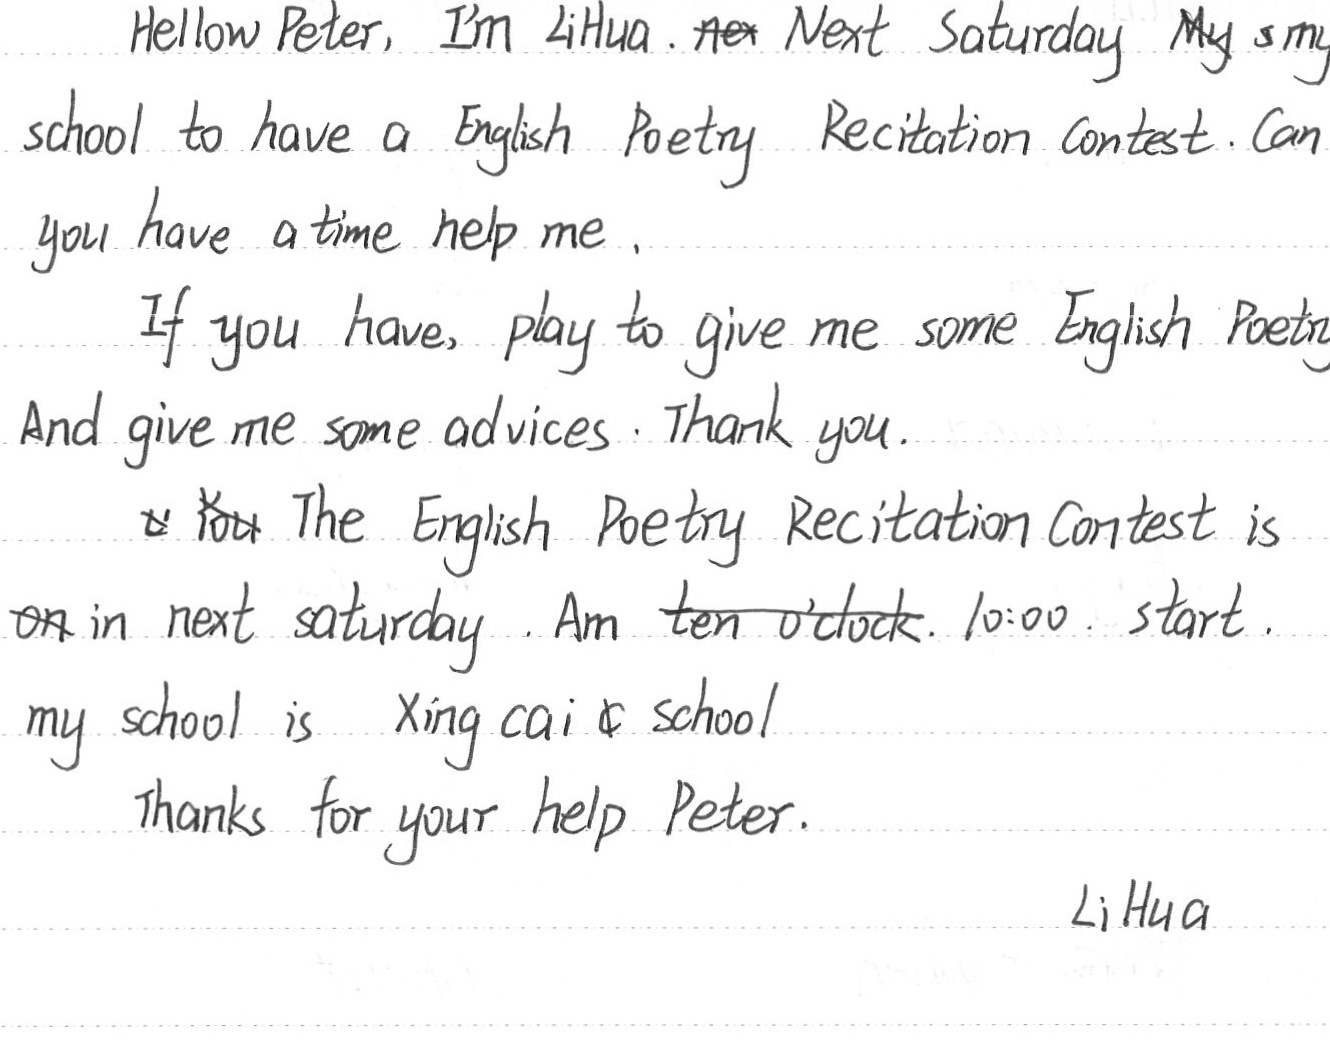 Hellow Peter, I'm LiHua. Next Saturday my
school to have a English Poetry Recitation Contest. Can
you have a time help me.
If you have, play to give me some English Poetry
And give me some advices. Thank you.
The English Poetry Recitation Contest is
in next saturday. Am 10:00. start.
my school is Xing cai school
Thanks for your help Peter.
Li Hua